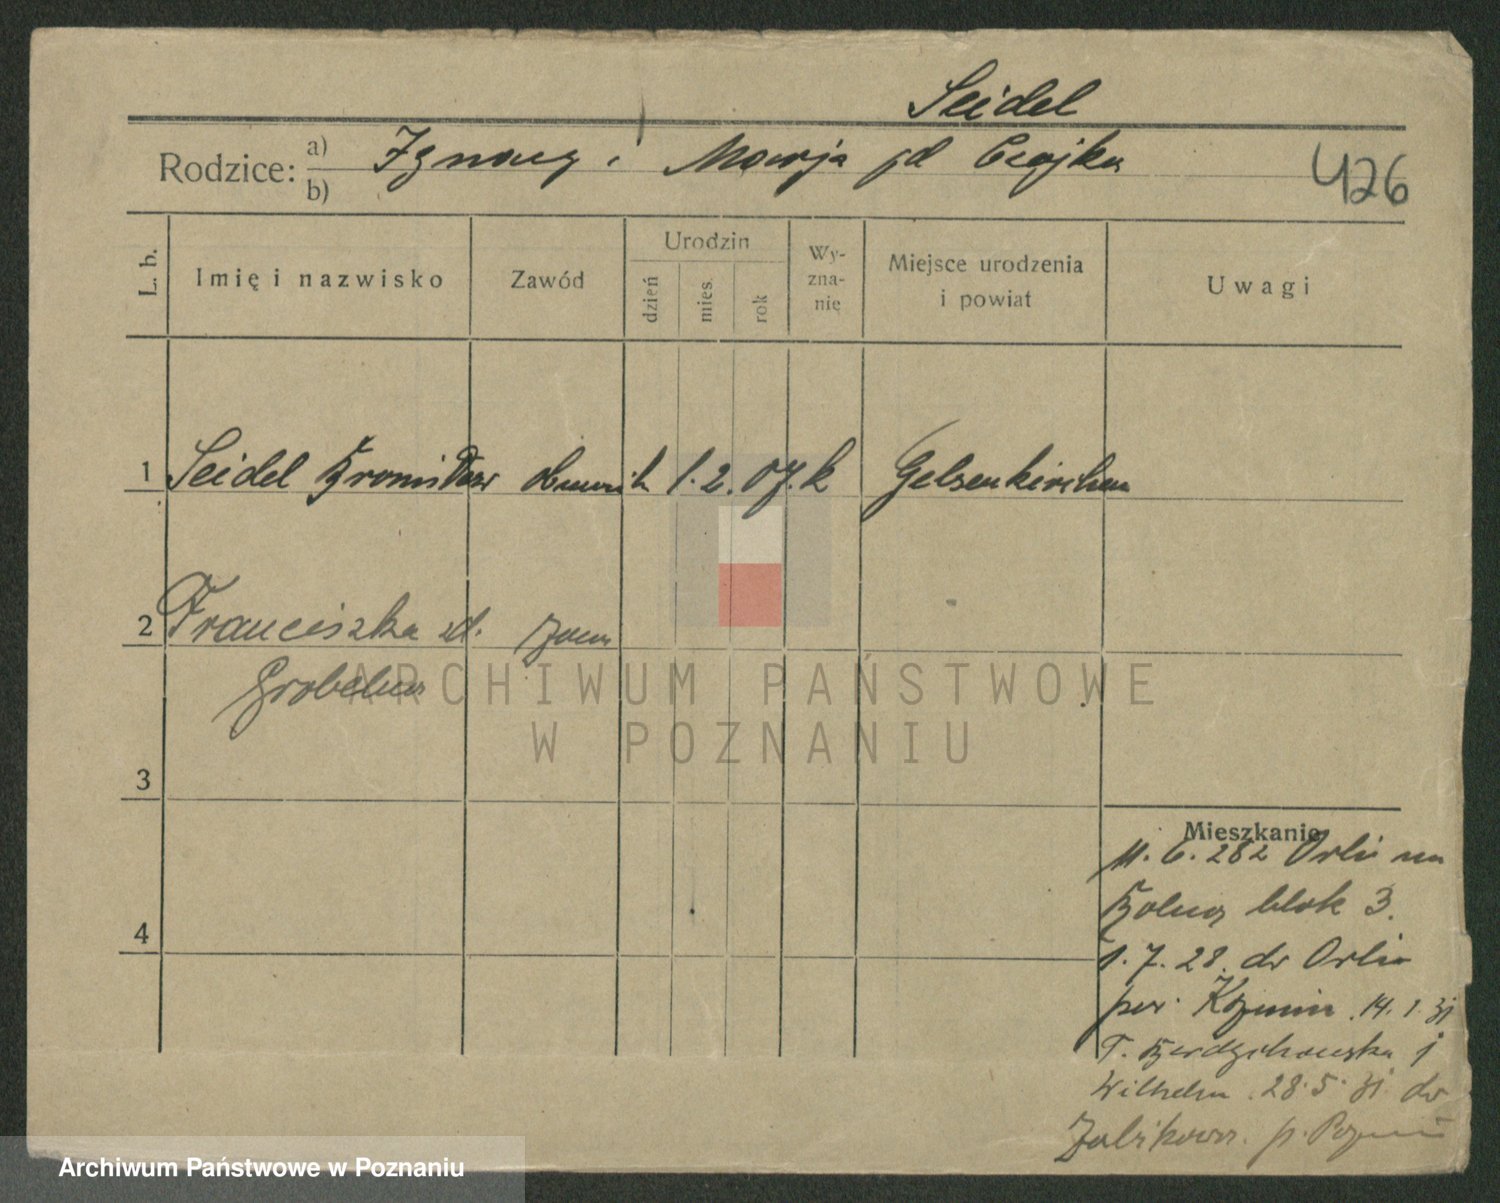 Seidel
Rodzice: a) Ignacy i Marja zd Czajka
b)
426
L. b.
Imię i nazwisko
Zawód
Urodzin
dzień
mies.
rok
Wy-
zna-
nie
Miejsce urodzenia
i powiat
Uwagi
1 Seidel Bronisław obuwnik 1. 2. 07. k Gelsenkirchen
2 Franciszka zd. żona
Grobelna
3
Mieszkanie
11. 6. 282 Orli na
blok 3.
4
1. 7. 28. do Orlie
pow. Koźmin 14. 1. 31
T.
Wilhelm 28. 5. 31. do
Żabikowo. p. Poznań
ARCHIWUM PAŃSTWOWE
W POZNANIU
Archiwum Państwowe w Poznaniu